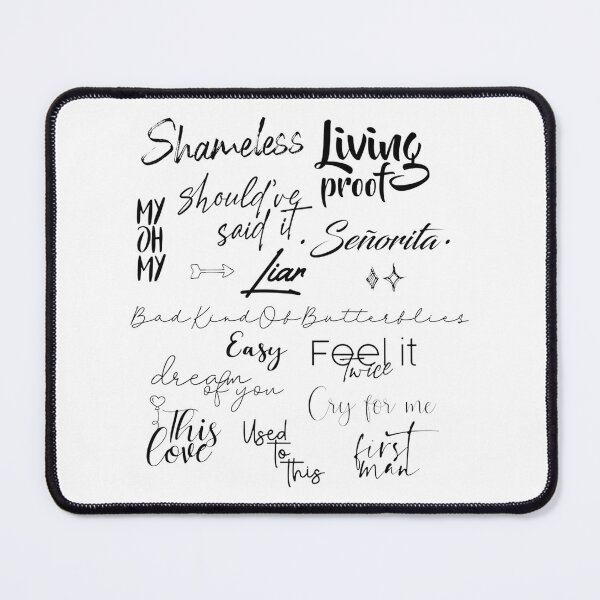 Shameless
Living
proof
should've
said it.
MY
OH
MY
Señorita.
Liar
BadKindOfButterflies
Easy
Feel it
Twice
dream
of you
Cry for me
This
love
Used
To
this
first
man